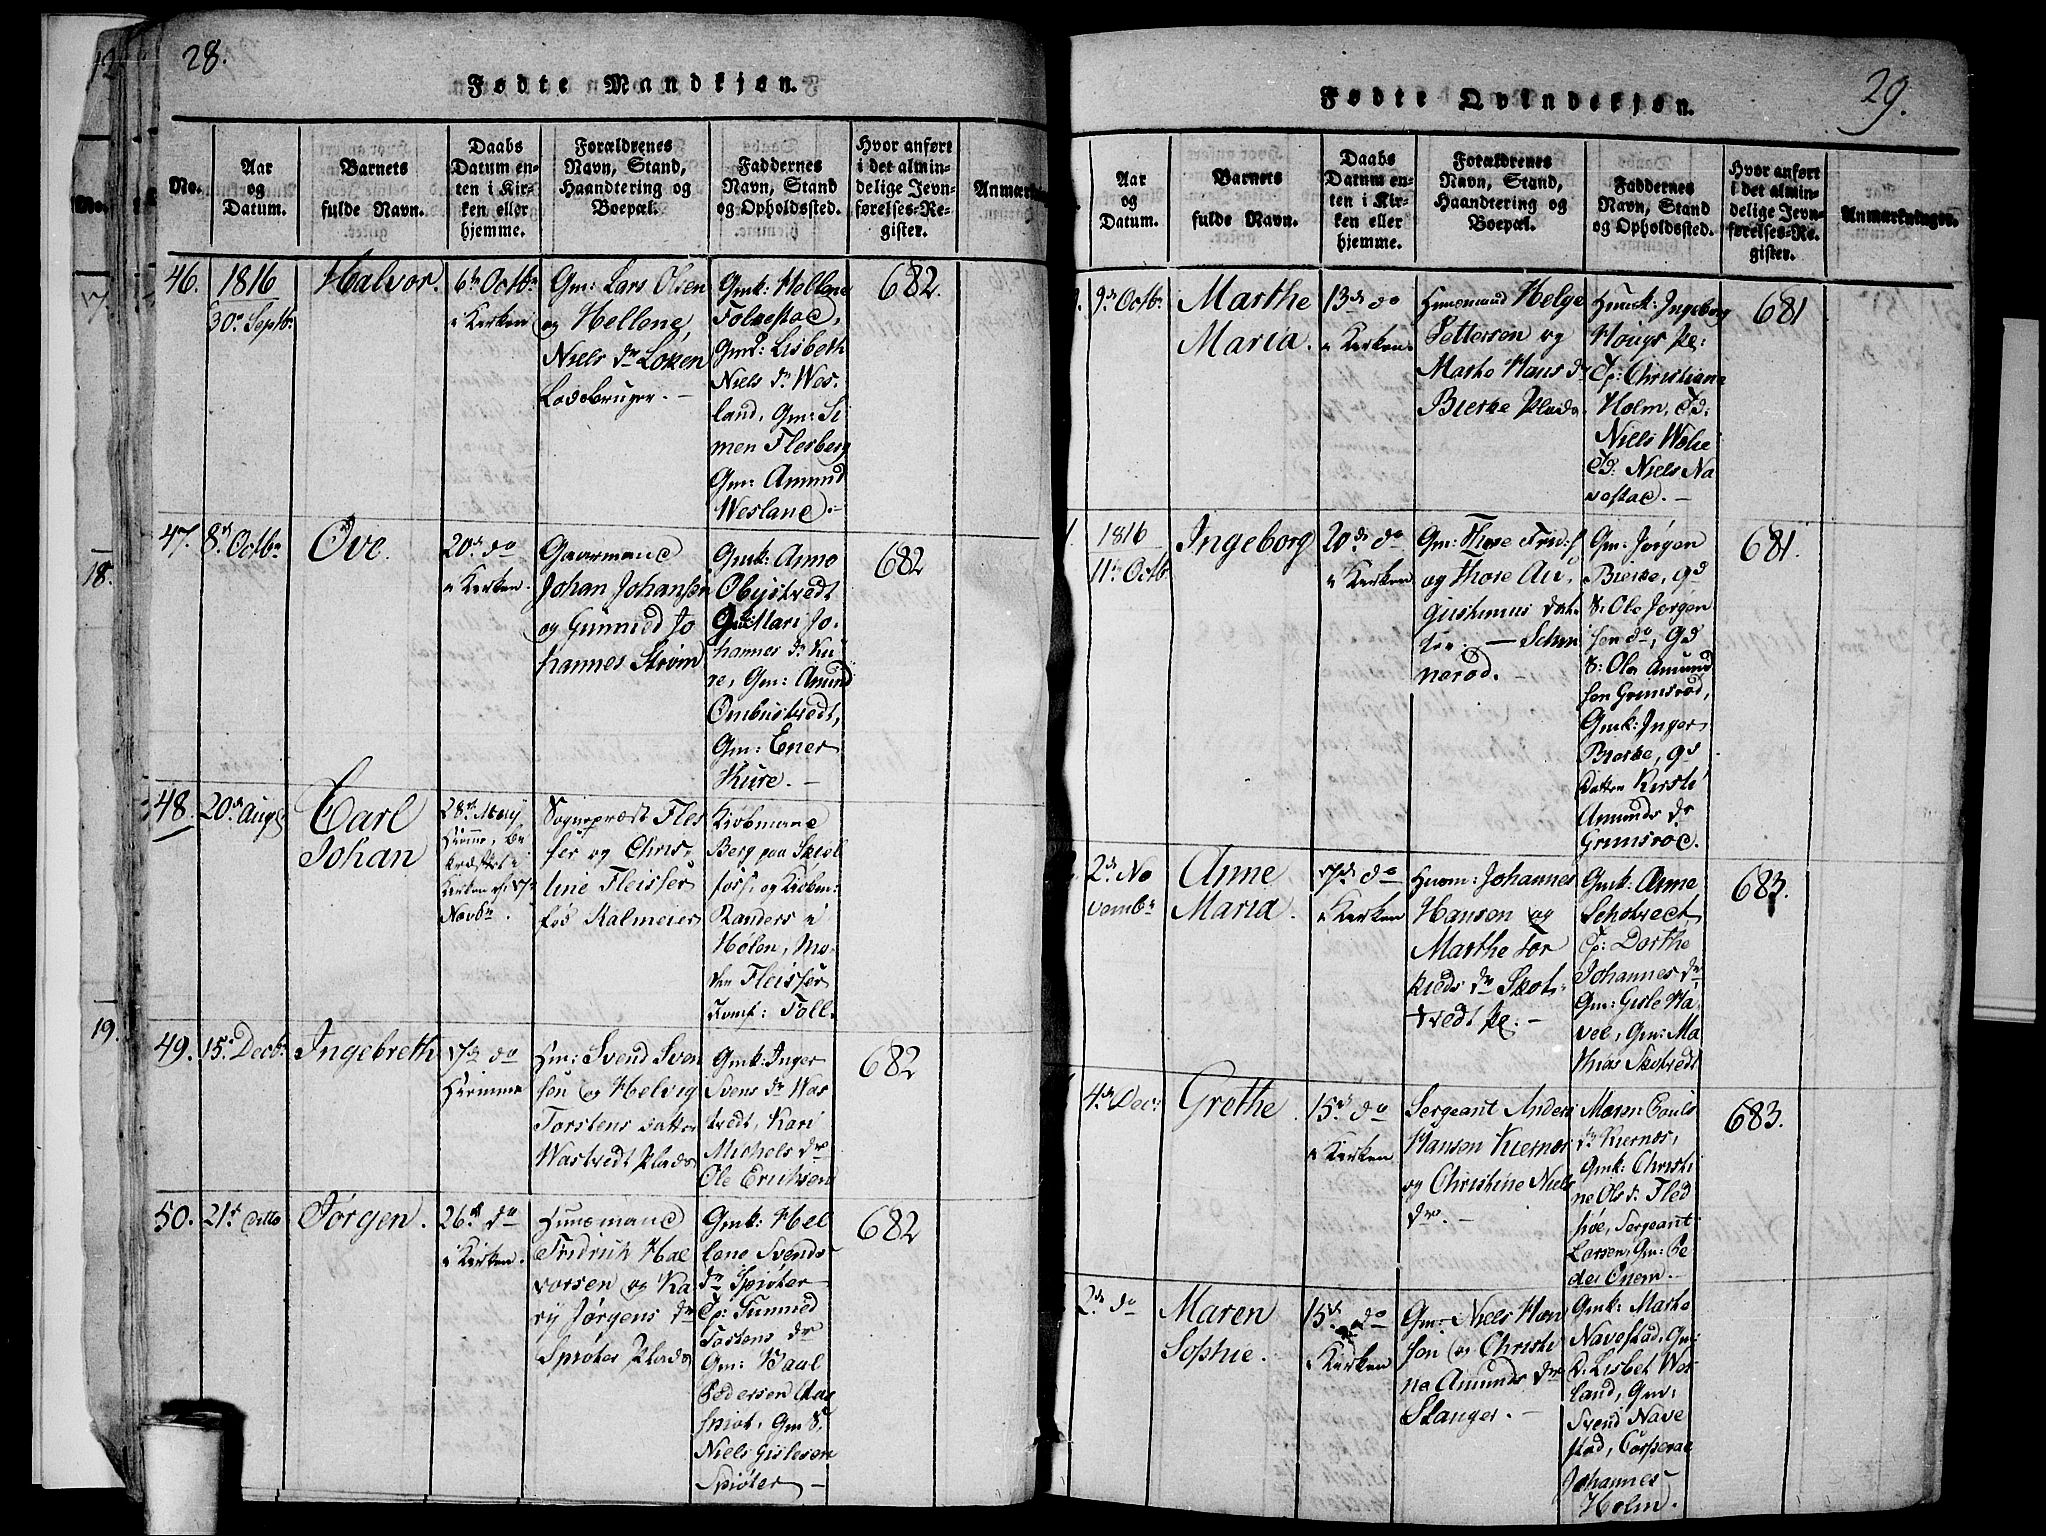 28.
Fødte Mandkjøn.
No.
Aar
og
Datum.
Barnets
fulde Navn.
Daabs
Datum en-
ten i Kir-
ken eller
hjemme.
Forældrenes
Navn, Stand,
Haandtering og
Boepæl.
Faddernes
Navn, Stand
og Opholdssted.
Hvor anført
i det almin-
delige Jevn-
førelses-Re-
gister.
46.
1816
30e Septb.
Halvor.
6te Octbr
i Kirken
Gm: Lars Olsen
og Hellene,
Niels dr Løken
Gmk: Hellene
Folkestad,
Gmd: Lisbeth
Niels dr Wes-
land, Gm: Si
men Flesberg
Gm: Amund
Wesland. —
682.
47.
8de Octbr
Ove.
20de do
i Kirken.
Gaarmand
Johan Johansen
og Gunnild Jo
hannes Strøm
Gmk: Anne
Obystvedt
Mari Jo-
hannes dr Ku-
re, Gm: Amund
Ombustvedt,
Gm: Ener
Kure. —
682
48.
20de Augst
Carl
Johan
28de
Hiemme,
Kirken 17de
Novbr.
Sognepræst Fleis
ser og Chris-
tine Fleisser
fød Kalmeier
Kiøbmand
Berg paa Skiel
fos, og Kiøbm:
Randers i
Hølen, Ma-
Fleisser
Jomf: Toll.
49.
15. Decbr
Ingebreth
17de do
Hiemme
Hm: Svend Sven
sen og Helvig
Torstens datter
Wastvedt Plads
Gmk: Inger
Svens dr Was
tvedt, Kari
Michels dr
Ole Eriksen
682
50.
21de ditto
Jørgen.
26de do
i Kirken.
Huusmand
Fridrich Hal
vorsen og Ka
ry Jørgens dr
Spiøter Plads
Gmk: Hel
lene Svends
dr Spiøter
Tp: Gunnild
Tostens dr
Gm:
Pedersen
Spiøt, Gm S.
Niels Gislesen
Spiøter —
682
29.
Fødte Qvindekjøn.
Aar
og
Datum.
Barnets
fulde Navn.
Daabs
Datum en-
ten i Kir-
ken eller
hjemme.
Forældrenes
Navn, Stand,
Haandtering og
Boepæl.
Faddernes
Navn, Stand
og Opholdssted.
Hvor anført
i det almin-
delige Jevn-
førelses-Re-
gister.
Anmærkninger.
9de Octbr
Marthe
Maria.
13de do
i Kirken.
Huusmand Helge
Pettersen og
Marthe Hans dr
Bierke Plads.
Husk: Ingeborg
Houg Pl:
Tp: Christiane
Holm, Td:
Niels Wølie
Td: Niels Na
vestad. —
681
1816
11te Octb
Ingeborg
20de do
i Kirken
Gm: Thore
og Thore Au,
gustinus dat-
ter. — Schin
nerød. —
Gm: Jørgen
Bierke, gd
S: Ole Jørgen
sen do, gd
S: Ole Amund
sen Grimsrød,
Gmk: Inger
Bierke, gd
datter Kirsti
Amunds dr
Grimsrød.
681.
2de No
vembr
Anne
Maria.
17de do
i Kirken
Huusm: Johannes
Hansen og
Marthe Tor
kields dr Skot-
vedt Pl: —
Gmk: Anne
Schotvedt
Tp: Dorthe
Johannes dr,
Gm: Gisle Ha-
vel, Gm: Ma
thias Skotvedt
683.
4de Dec:
Grethe
15de do
i Kirken
Sergeant Anders
Hansen Kiernes
og Christine Niels
dr. —
Maren Pouls
dr Kiernes,
Gmk: Christi
ne Ols dr Fled
høe, Sergeant
Larsen, Gm: Pe
der Enem —
683.
2de do
Maren
Sophie.
15de do
Kirken
Gm: Niels Han
sen og Christi
ne Amunds dr
Slanger. —
Gmk: Marthe
Navestad, Gm:
D. Lisbet Wes
land, Gm:
Svend Nave
stad, Corporal
Johannes
Holm.
18.
19.